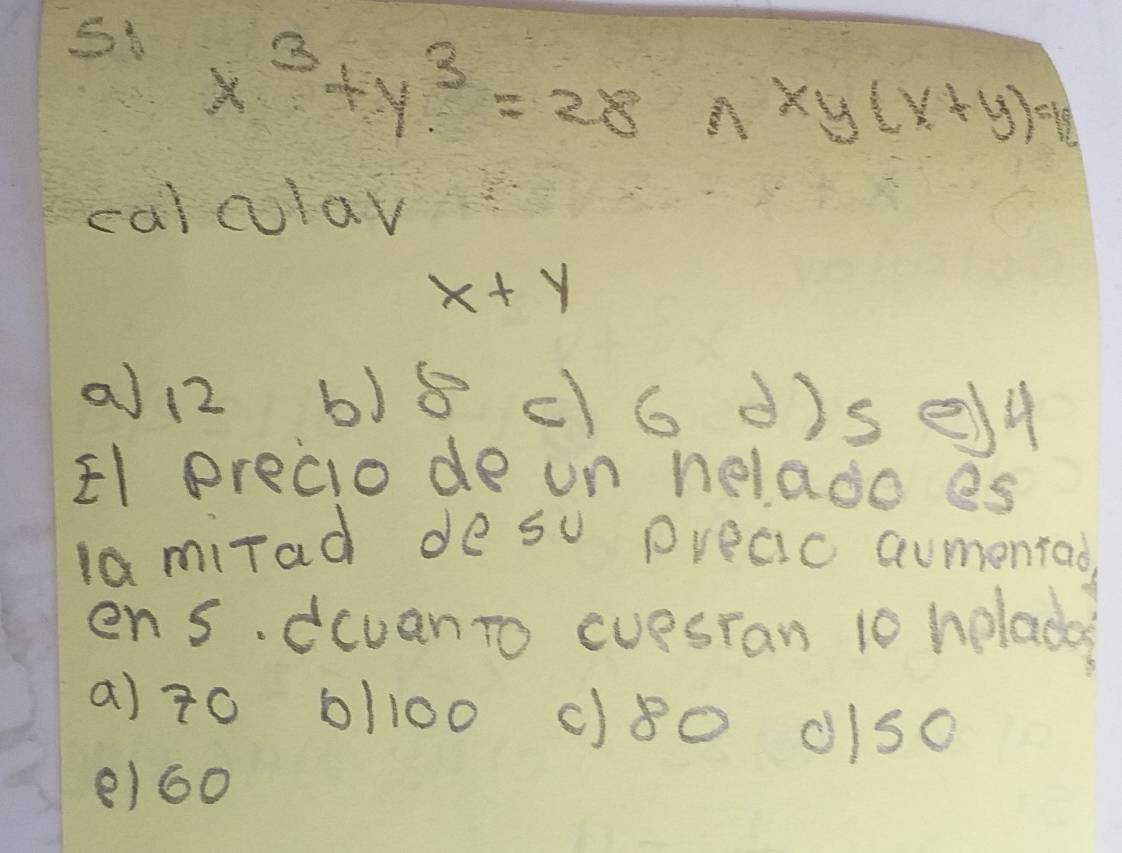 Si x³+y³=28 ∧ xy(x+y)=12
calcular
x+y
a) 12 b) 8 c) 6 d) 5 e) 4
El precio de un helado es
la mitad de su precio aumentado
en 5. ¿cuanto cuestan 10 helados?
a) 70 b) 100 c) 80 d) 50
e) 60